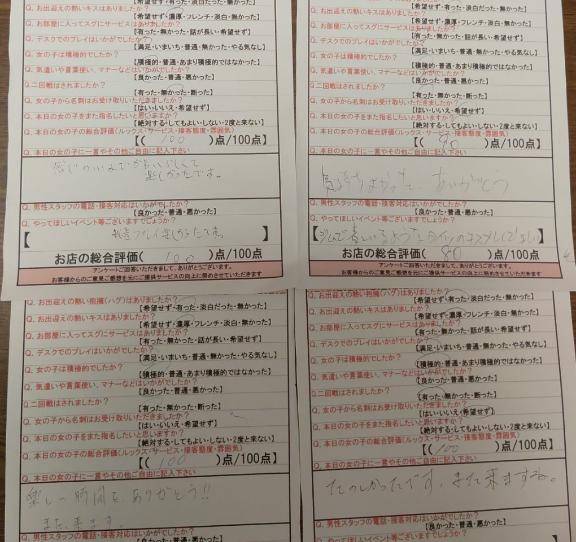 【希望せず・有った・淡白だった・無かった】
Q. お出迎えの熱いキスはありましたか？
【希望せず・濃厚・フレンチ・淡白・無かった】
Q. お部屋に入ってスグにサービスはありましたか？
【有った・無かった・話が長い・希望せず】
Q. デスクでのプレイはいかがでしたか？
【満足・いまいち・普通・無かった・やる気なし】
Q. 女の子は積極的でしたか？
【積極的・普通・あまり積極的ではなかった】
Q. 気遣いや言葉使い、マナーなどはいかがでしたか？
【良かった・普通・悪かった】
Q. 二回戦はされましたか？
【有った・無かった・断った】
Q. 女の子から名刺はお受け取りいただきましたか？
【はい・いいえ・希望せず】
Q. 本日の女の子をまた指名したいと思いますか？
【絶対する・してもよい・しない・2度と来ない】
Q. 本日の女の子の総合評価(ルックス・サービス・接客態度・雰囲気)
【( 100 )点/100点】
Q. 本日の女の子に一言やその他ご自由に記入下さい
楽しかったです。
Q. 男性スタッフの電話・接客対応はいかがでしたか？
【良かった・普通・悪かった】
Q. やってほしいイベント等ございますでしょうか？
お店の総合評価( 100 )点/100点
アンケートご回答いただきまして、ありがとうございます。
お客様からのご意見ご感想を元にご提供サービスの向上に努めさせていただきます
【希望せず・有った・淡白だった・無かった】
Q. お出迎えの熱いキスはありましたか？
【希望せず・濃厚・フレンチ・淡白・無かった】
Q. お部屋に入ってスグにサービスはありましたか？
【有った・無かった・話が長い・希望せず】
Q. デスクでのプレイはいかがでしたか？
【満足・いまいち・普通・無かった・やる気なし】
Q. 女の子は積極的でしたか？
【積極的・普通・あまり積極的ではなかった】
Q. 気遣いや言葉使い、マナーなどはいかがでしたか？
【良かった・普通・悪かった】
Q. 二回戦はされましたか？
【有った・無かった・断った】
Q. 女の子から名刺はお受け取りいただきましたか？
【はい・いいえ・希望せず】
Q. 本日の女の子をまた指名したいと思いますか？
【絶対する・してもよい・しない・2度と来ない】
Q. 本日の女の子の総合評価(ルックス・サービス・接客態度・雰囲気)
【( 90 )点/100点】
Q. 本日の女の子に一言やその他ご自由に記入下さい
気持ちよかった ありがとう
Q. 男性スタッフの電話・接客対応はいかがでしたか？
【良かった・普通・悪かった】
Q. やってほしいイベント等ございますでしょうか？
お店の総合評価( 90 )点/100点
アンケートご回答いただきまして、ありがとうございます。
お客様からのご意見ご感想を元にご提供サービスの向上に努めさせていただきます
Q. お出迎えの熱い抱擁(ハグ)はありましたか？
【希望せず・有った・淡白だった・無かった】
Q. お出迎えの熱いキスはありましたか？
【希望せず・濃厚・フレンチ・淡白・無かった】
Q. お部屋に入ってスグにサービスはありましたか？
【有った・無かった・話が長い・希望せず】
Q. デスクでのプレイはいかがでしたか？
【満足・いまいち・普通・無かった・やる気なし】
Q. 女の子は積極的でしたか？
【積極的・普通・あまり積極的ではなかった】
Q. 気遣いや言葉使い、マナーなどはいかがでしたか？
【良かった・普通・悪かった】
Q. 二回戦はされましたか？
【有った・無かった・断った】
Q. 女の子から名刺はお受け取りいただきましたか？
【はい・いいえ・希望せず】
Q. 本日の女の子をまた指名したいと思いますか？
【絶対する・してもよい・しない・2度と来ない】
Q. 本日の女の子の総合評価(ルックス・サービス・接客態度・雰囲気)
【( 100 )点/100点】
Q. 本日の女の子に一言やその他ご自由に記入下さい
楽しい時間をありがとう!!
また来ます。
【良かった・普通・悪かった】
Q. お出迎えの熱い抱擁(ハグ)はありましたか？
【希望せず・有った・淡白だった・無かった】
Q. お出迎えの熱いキスはありましたか？
【希望せず・濃厚・フレンチ・淡白・無かった】
Q. お部屋に入ってスグにサービスはありましたか？
【有った・無かった・話が長い・希望せず】
Q. デスクでのプレイはいかがでしたか？
【満足・いまいち・普通・無かった・やる気なし】
Q. 女の子は積極的でしたか？
【積極的・普通・あまり積極的ではなかった】
Q. 気遣いや言葉使い、マナーなどはいかがでしたか？
【良かった・普通・悪かった】
Q. 二回戦はされましたか？
【有った・無かった・断った】
Q. 女の子から名刺はお受け取りいただきましたか？
【はい・いいえ・希望せず】
Q. 本日の女の子をまた指名したいと思いますか？
【絶対する・してもよい・しない・2度と来ない】
Q. 本日の女の子の総合評価(ルックス・サービス・接客態度・雰囲気)
【( 100 )点/100点】
Q. 本日の女の子に一言やその他ご自由に記入下さい
たのしかったです、また来ますね。
Q. 男性スタッフの電話・接客対応はいかがでしたか？
【良かった・普通・悪かった】
Q. やってほしいイベント等ございますでしょうか？